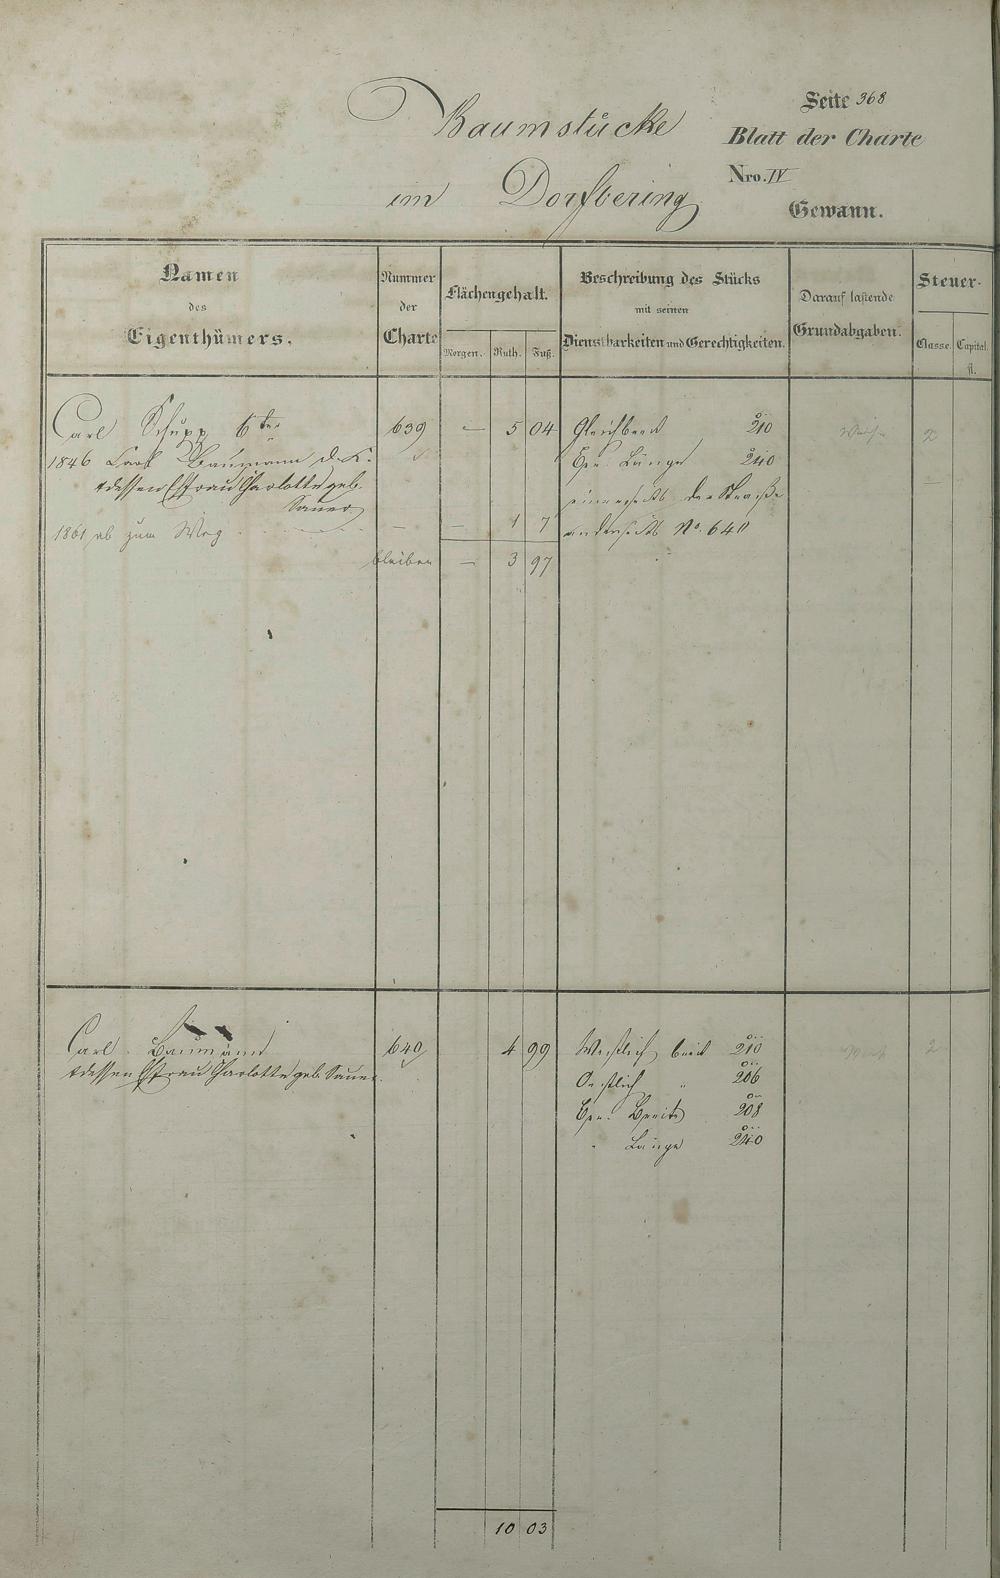 Seite 368
Baumstücke
Blatt der Charte
Nro. IV
im Dorfbering
Gewann.
Namen
des
Eigenthümers.
Nummer
der
Charte
Flächengehalt.
Morgen. Ruth. Fuß.
Beschreibung des Stücks
mit seinen
Dienstbarkeiten und Gerechtigkeiten.
Darauf lastende
Grundabgaben.
Steuer-
Classe. Capital.
fl.
Carl Schupp 6ter 639 — 5 04 Gleichbreit 210 2
1846 Carl Baumann d. K. Ger. Länge 240
+ dessen Ehefrau Charlotte geb. einerseits der Straße
Sauer
1861 ab zum Weg — — 1 7 anderseits No. 640
bleiben — 3 97
Carl Baumann 640 4 99 Westlich breit 210 2
+ dessen Ehefrau Charlotte geb. Sauer
Oestlich " 206
Ger. Breite 208
" Länge 240
10 03